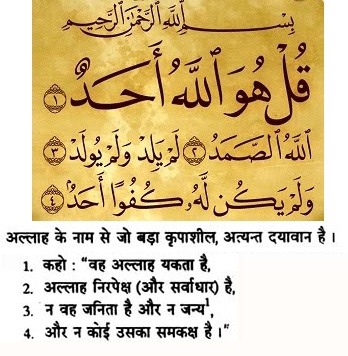 بِسْمِ اللَّهِ الرَّحْمَنِ الرَّحِيمِ
قُلْ هُوَ اللَّهُ أَحَدٌ ١
اللَّهُ الصَّمَدُ ٢ لَمْ يَلِدْ وَلَمْ يُولَدْ ٣
وَلَمْ يَكُن لَّهُ كُفُوًا أَحَدٌ ٤
अल्लाह के नाम से जो बड़ा कृपाशील, अत्यन्त दयावान है ।
1. कहो : "वह अल्लाह यकता है,
2. अल्लाह निरपेक्ष (और सर्वाधार) है,
3. न वह जनिता है और न जन्य¹,
4. और न कोई उसका समकक्ष है ।"